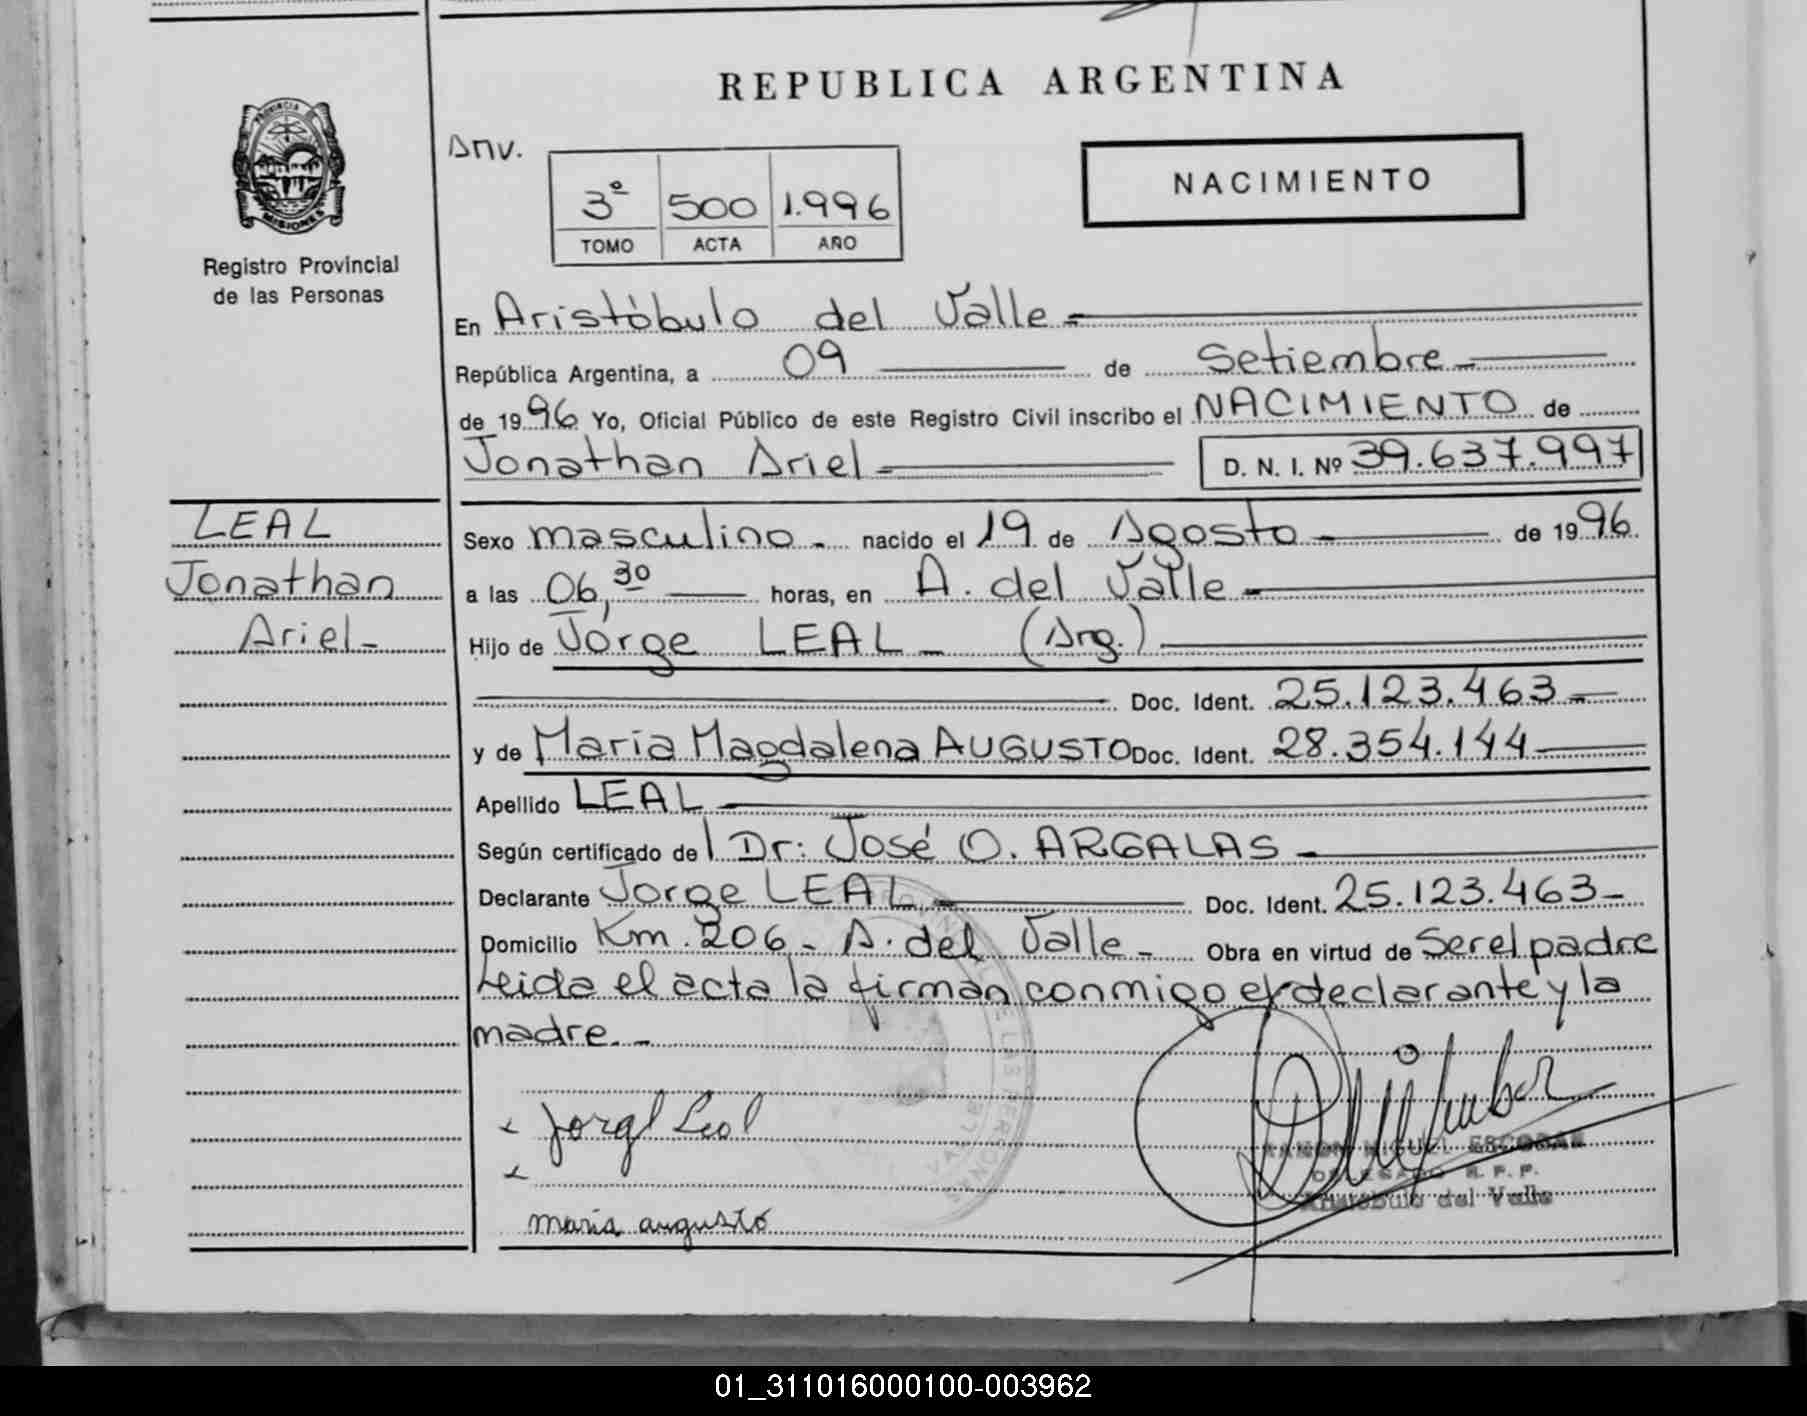 REPUBLICA ARGENTINA
PROVINCIA
MISIONES
Registro Provincial
de las Personas
Anv.
3º 500 1.996
TOMO ACTA AÑO
NACIMIENTO
En Aristóbulo del Valle
República Argentina, a 09 de Setiembre
de 1996 Yo, Oficial Público de este Registro Civil inscribo el NACIMIENTO de
Jonathan Ariel D. N. I. Nº 39.637.997
LEAL
Jonathan
Ariel
Sexo masculino nacido el 19 de Agosto de 1996.
a las 06,30 horas, en A. del Valle
Hijo de Jorge LEAL (Arg.)
Doc. Ident. 25.123.463
y de María Magdalena AUGUSTO Doc. Ident. 28.354.144
Apellido LEAL
Según certificado del Dr: José O. ARGALAS
Declarante Jorge LEAL Doc. Ident. 25.123.463
Domicilio Km. 206 - A. del Valle Obra en virtud de Ser el padre
Leida el acta la firman conmigo el declarante y la
madre.
Jorge Leal
maria augusto
RAMON MIGUEL ESCOBAR
DELEGADO R. P. P.
Aristobulo del Valle
01_311016000100-003962